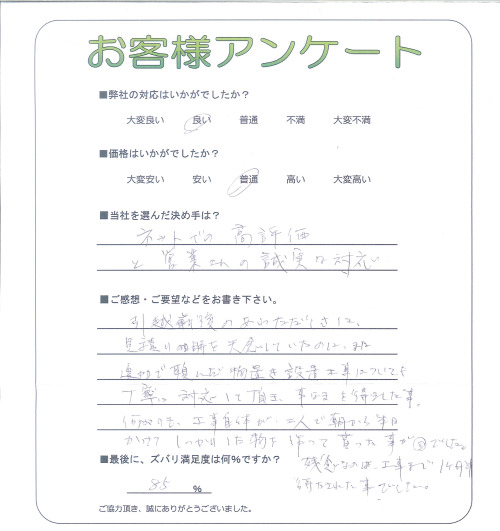 お客様アンケート
■弊社の対応はいかがでしたか？
大変良い 良い 普通 不満 大変不満
■価格はいかがでしたか？
大変安い 安い 普通 高い 大変高い
■当社を選んだ決め手は？
ネットでの高評価
と営業さんの誠実な対応
■ご感想・ご要望などをお書き下さい。
引越前後のあわただしさに、
見積り
で頼んだ物置き設置工事についても
丁寧に対応して頂き、
何よりも、工事自体が、二人で朝から半日
かけてしっかりした物を作って貰った事が
■最後に、ズバリ満足度は何%ですか？
残念なのは、工事まで
85 %
待たされた事でした。
ご協力頂き、誠にありがとうございました。